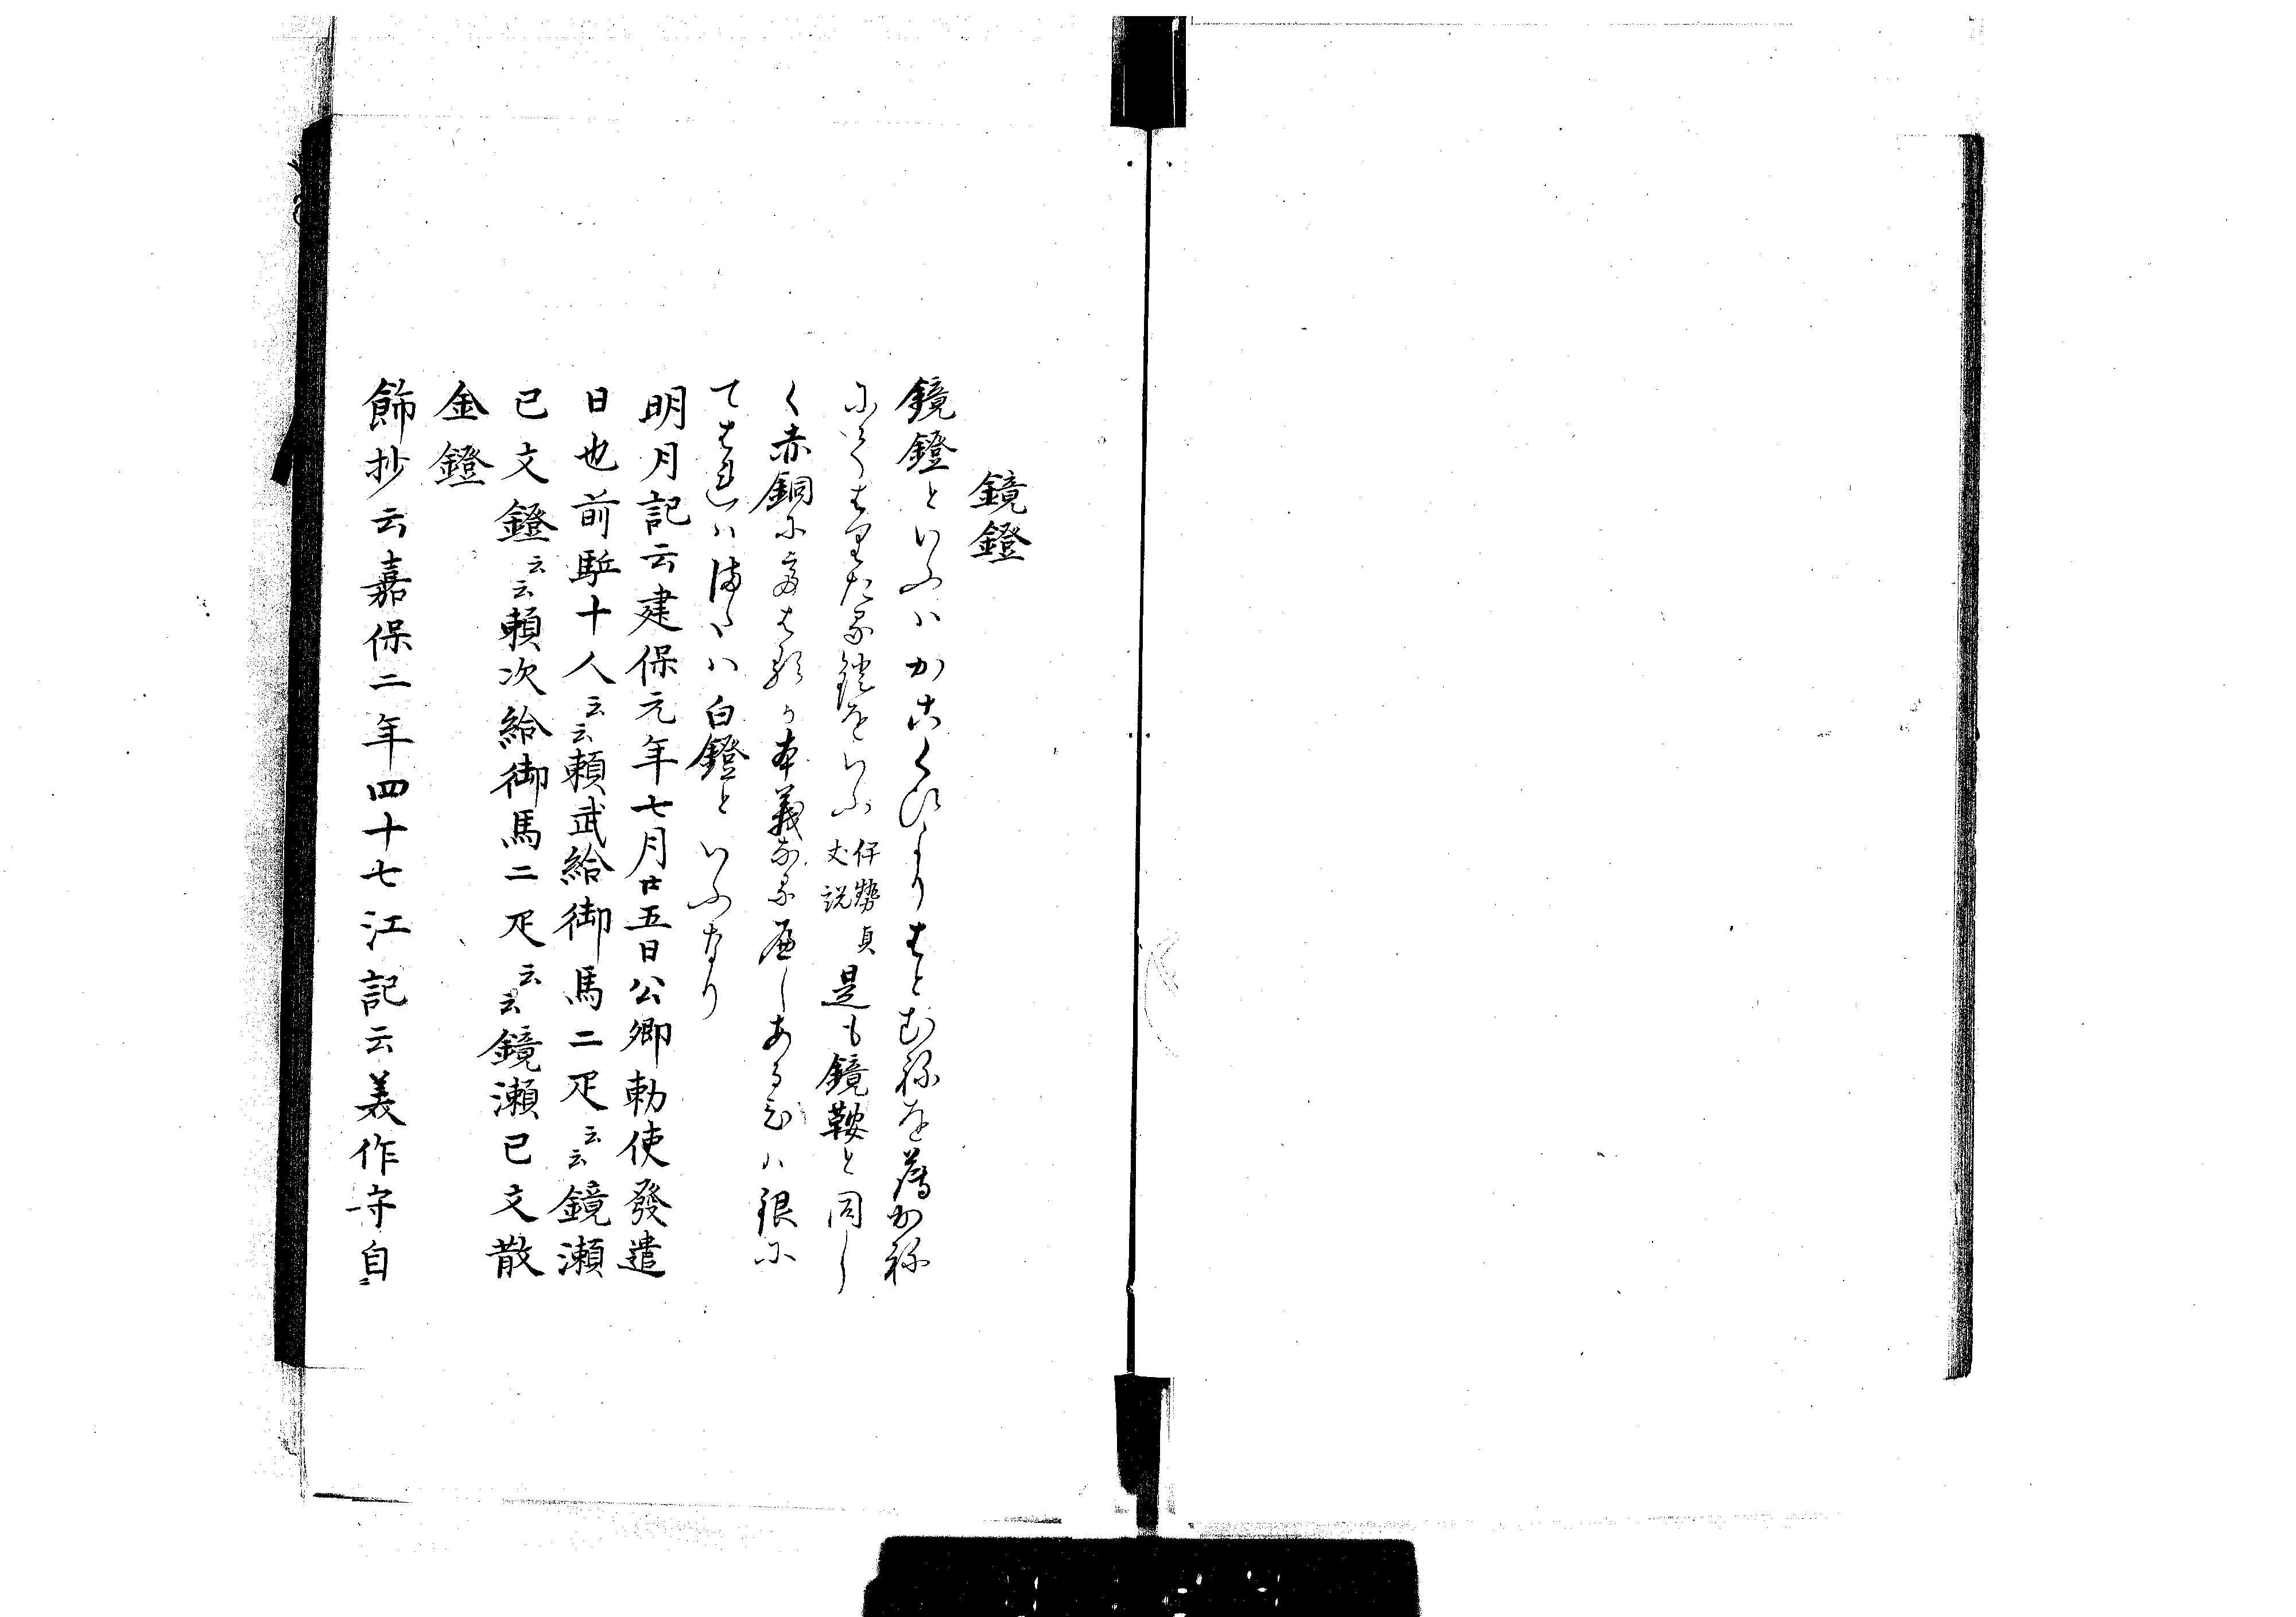 鏡鐙
鏡鐙といふハかこくひよりはとむねを薄かね
にてはりたる鐙をいふ伊勢貞丈説是も鏡鞍と同し
く赤銅にてはるか本義なるへしあるひハ銀に
てはれハまたハ白鐙といふなり
明月記云建保元年七月廿五日公卿勅使發遣
日也前駈十人云云頼武給御馬二疋云云鏡瀬
已文鐙云云頼次給御馬二疋云云鏡瀬已文散
金鐙
餝抄云嘉保二年四十七江記云美作守自